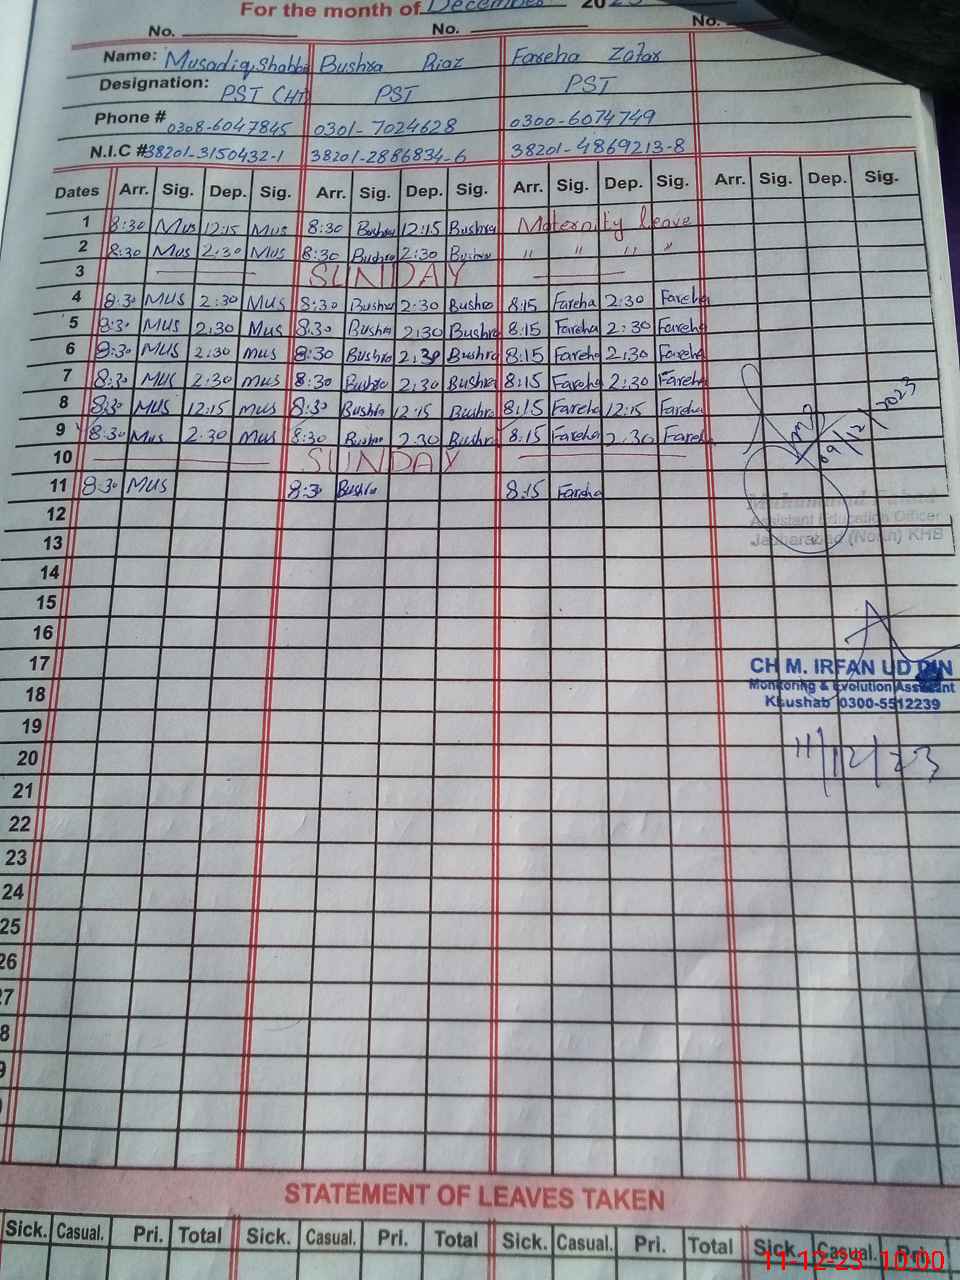 For the month of December 2023
No. No. No.
Name: Musadiq Shabbi Bushra Riaz Fareha Zafar
Designation: PST CHT PST PST
Phone # 0308-6047845 0301-7024628 0300-6074749
N.I.C # 38201-3150432-1 38201-2886834-6 38201-4869213-8
Dates Arr. Sig. Dep. Sig. Arr. Sig. Dep. Sig. Arr. Sig. Dep. Sig. Arr. Sig. Dep. Sig.
1 8:30 Mus 12:15 Mus 8:30 Bushra 12:15 Bushra Maternity leave
2 8:30 Mus 2:30 Mus 8:30 Bushra 2:30 Bushra " " " "
3 SUNDAY
4 8:30 Mus 2:30 Mus 8:30 Bushra 2:30 Bushra 8:15 Fareha 2:30 Fareha
5 8:30 Mus 2:30 Mus 8:30 Bushra 2:30 Bushra 8:15 Fareha 2:30 Fareha
6 8:30 Mus 2:30 Mus 8:30 Bushra 2:30 Bushra 8:15 Fareha 2:30 Fareha
7 8:30 Mus 2:30 Mus 8:30 Bushra 2:30 Bushra 8:15 Fareha 2:30 Fareha
8 8:30 Mus 12:15 Mus 8:30 Bushra 12:15 Bushra 8:15 Fareha 12:15 Fareha
9 8:30 Mus 2:30 Mus 8:30 Bushra 2:30 Bushra 8:15 Fareha 2:30 Fareha
09/12/2023
10 SUNDAY
11 8:30 Mus 8:30 Bushra 8:15 Fareha
Muhammad
12
Assistant Education Officer
13
Jauharabad (North) KHB
14
15
16
17
CH M. IRFAN UD DIN
Monitoring & Evolution Assistant
18
Khushab 0300-5512239
19
20
11/12/23
21
22
23
24
25
26
27
8
9
STATEMENT OF LEAVES TAKEN
Sick. Casual. Pri. Total Sick. Casual. Pri. Total Sick. Casual. Pri. Total Sick. Casual. Pri.
11-12-23 10:00